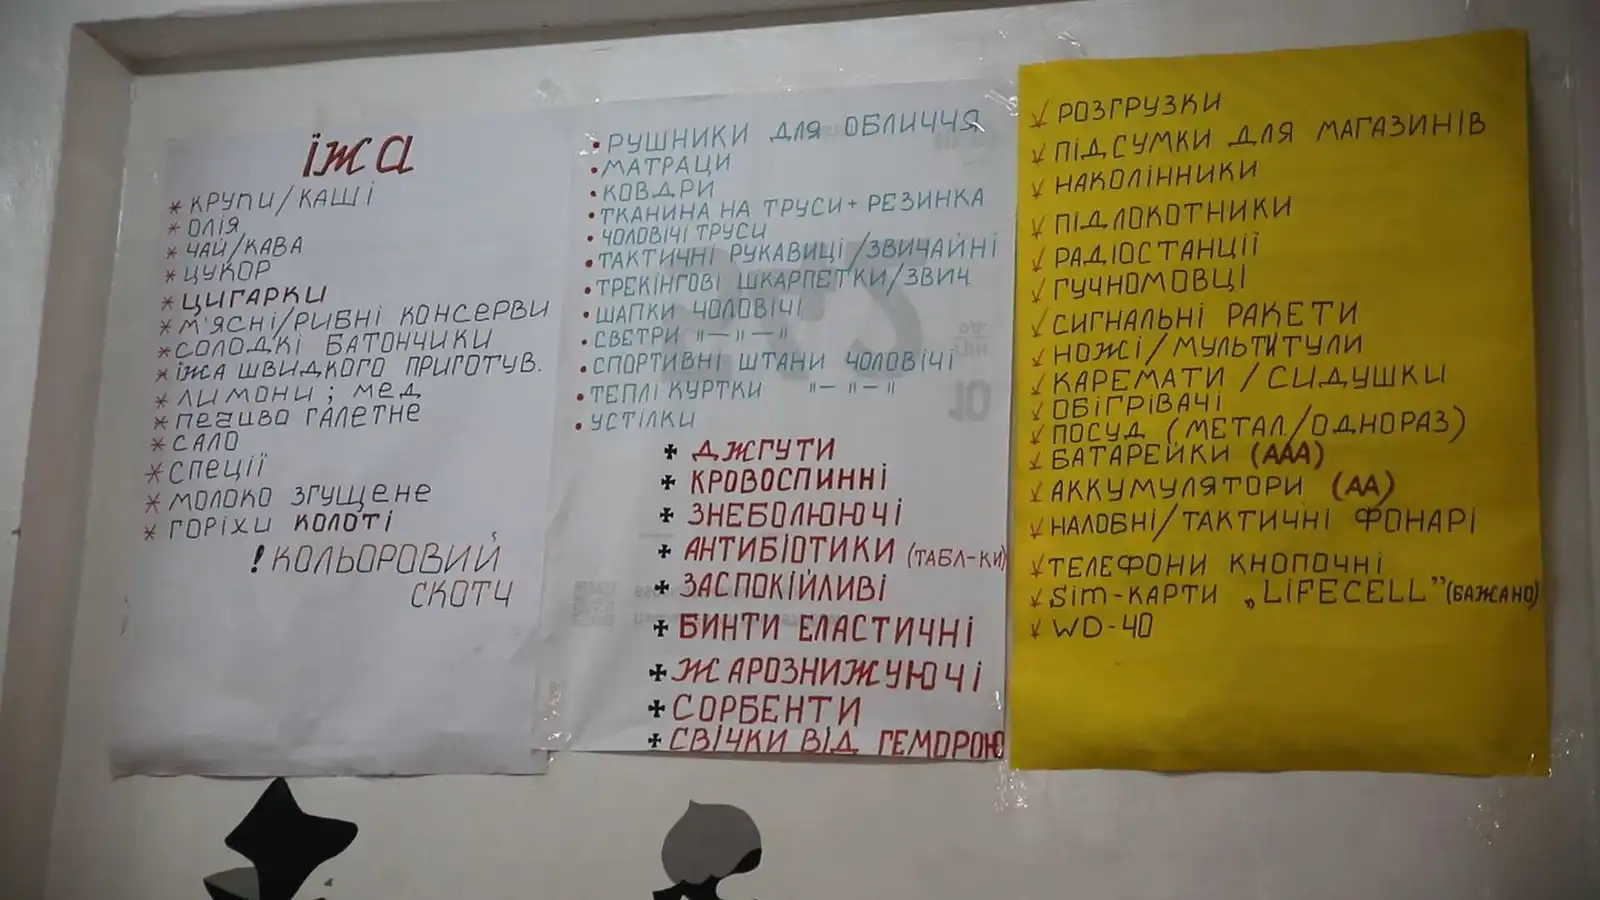 їжа
* КРУПИ/КАШІ
* ОЛІЯ
* ЧАЙ/КАВА
* ЦУКОР
* ЦИГАРКИ
* М'ЯСНІ/РИБНІ КОНСЕРВИ
* СОЛОДКІ БАТОНЧИКИ
* ЇЖА ШВИДКОГО ПРИГОТУВ.
* ЛИМОНИ ; МЕД
* ПЕЧИВО ГАЛЕТНЕ
* САЛО
* СПЕЦІЇ
* МОЛОКО ЗГУЩЕНЕ
* ГОРІХИ КОЛОТІ
! КОЛЬОРОВИЙ
СКОТЧ
• РУШНИКИ ДЛЯ ОБЛИЧЧЯ
• МАТРАЦИ
• КОВДРИ
• ТКАНИНА НА ТРУСИ + РЕЗИНКА
• ЧОЛОВІЧІ ТРУСИ
• ТАКТИЧНІ РУКАВИЦІ/ЗВИЧАЙНІ
• ТРЕКІНГОВІ ШКАРПЕТКИ/ЗВИЧ.
• ШАПКИ ЧОЛОВІЧІ
• СВЕТРИ "—"—"
• СПОРТИВНІ ШТАНИ ЧОЛОВІЧІ
• ТЕПЛІ КУРТКИ "—"—"
• УСТІЛКИ
✠ ДЖГУТИ
✠ КРОВОСПИННІ
✠ ЗНЕБОЛЮЮЧІ
✠ АНТИБІОТИКИ (ТАБЛ-КИ)
✠ ЗАСПОКІЙЛИВІ
✠ БИНТИ ЕЛАСТИЧНІ
✠ ЖАРОЗНИЖУЮЧІ
✠ СОРБЕНТИ
✠ СВІЧКИ ВІД ГЕМОРОЮ
✓ РОЗГРУЗКИ
✓ ПІДСУМКИ ДЛЯ МАГАЗИНІВ
✓ НАКОЛІННИКИ
✓ ПІДЛОКОТНИКИ
✓ РАДІОСТАНЦІЇ
✓ ГУЧНОМОВЦІ
✓ СИГНАЛЬНІ РАКЕТИ
✓ НОЖІ/МУЛЬТИТУЛИ
✓ КАРЕМАТИ/СИДУШКИ
✓ ОБІГРІВАЧІ
✓ ПОСУД (МЕТАЛ/ОДНОРАЗ)
✓ БАТАРЕЙКИ (ААА)
✓ АККУМУЛЯТОРИ (АА)
✓ НАЛОБНІ/ТАКТИЧНІ ФОНАРІ
✓ ТЕЛЕФОНИ КНОПОЧНІ
✓ SIM-КАРТИ „LIFECELL” (БАЖАНО)
✓ WD-40